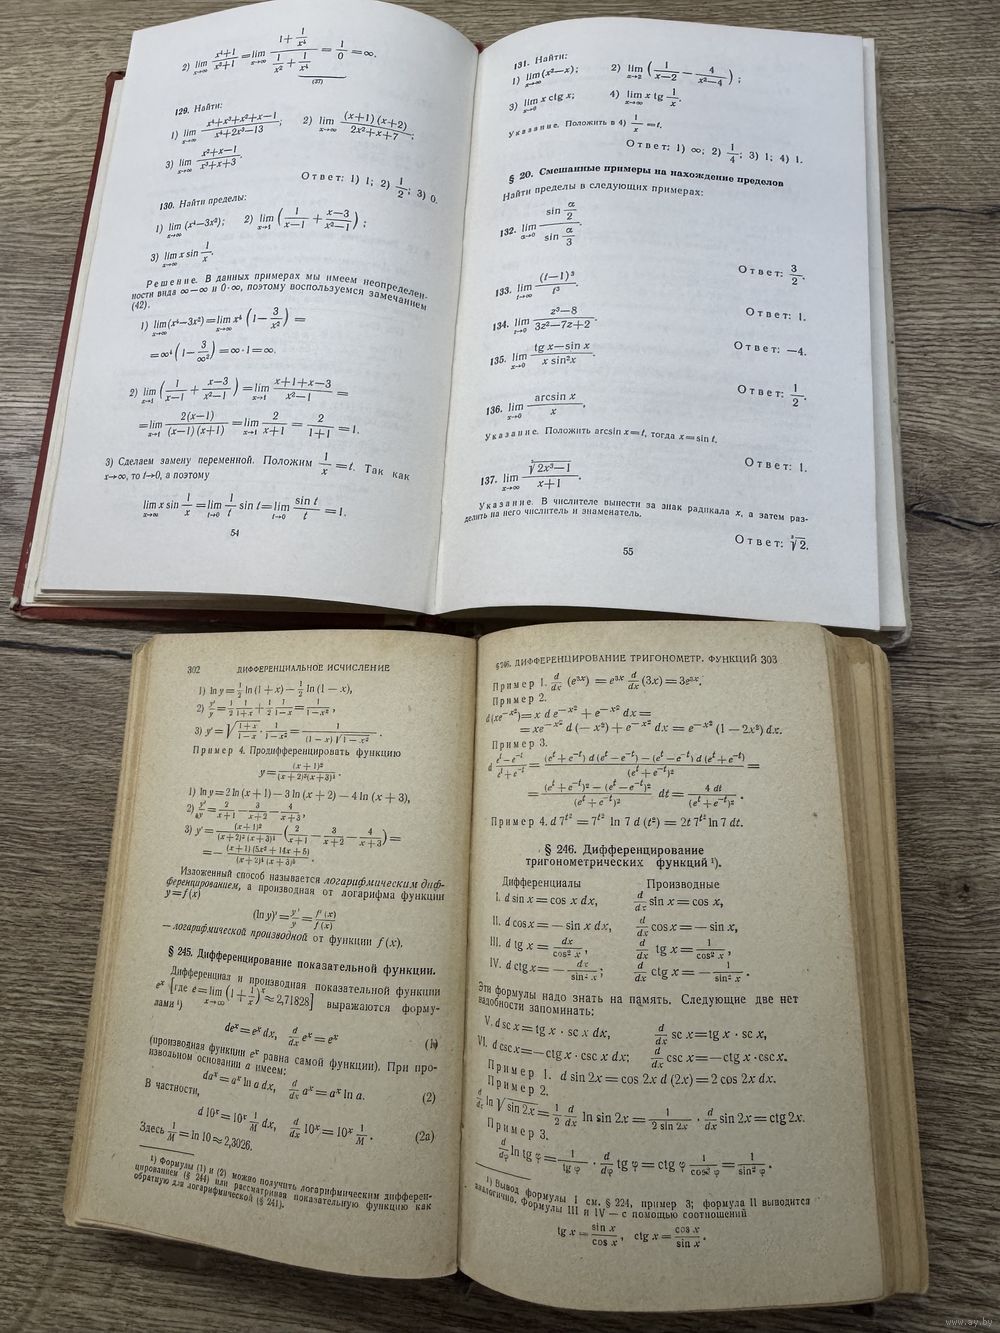 2) lim x→∞ (x⁴+1)/(x²+1) = lim x→∞ (1+1/x⁴)/(1/x²+1/x⁴) = 1/0 = ∞.
(37)
129. Найти:
1) lim x→∞ (x⁴+x³+x²+x−1)/(x⁴+2x³−13); 2) lim x→∞ ((x+1)(x+2))/(2x²+x+7);
3) lim x→∞ (x²+x−1)/(x³+x+3).
Ответ: 1) 1; 2) 1/2; 3) 0.
130. Найти пределы:
1) lim x→∞ (x⁴−3x²); 2) lim x→1 (1/(x−1) + (x−3)/(x²−1));
3) lim x→∞ x sin 1/x.
Решение. В данных примерах мы имеем неопределен-
ности вида ∞−∞ и 0·∞, поэтому воспользуемся замечанием
(42).
1) lim x→∞ (x⁴−3x²) = lim x→∞ x⁴ (1−3/x²) =
= ∞⁴ (1−3/∞²) = ∞·1 = ∞.
2) lim x→1 (1/(x−1) + (x−3)/(x²−1)) = lim x→1 (x+1+x−3)/(x²−1) =
= lim x→1 2(x−1)/((x−1)(x+1)) = lim x→1 2/(x+1) = 2/(1+1) = 1.
3) Сделаем замену переменной. Положим 1/x = t. Так как
x→∞, то t→0, а поэтому
lim x→∞ x sin 1/x = lim t→0 1/t sin t = lim t→0 sin t/t = 1.
54
131. Найти:
1) lim x→∞ (x²−x); 2) lim x→2 (1/(x−2) − 4/(x²−4));
3) lim x→0 x ctg x; 4) lim x→∞ x tg 1/x.
Указание. Положить в 4) 1/x = t.
Ответ: 1) ∞; 2) 1/4; 3) 1; 4) 1.
§ 20. Смешанные примеры на нахождение пределов
Найти пределы в следующих примерах:
132. lim α→0 (sin α/2)/(sin α/3).
Ответ: 3/2.
133. lim t→∞ (t−1)³/t³.
Ответ: 1.
134. lim z→0 (z³−8)/(3z²−7z+2).
Ответ: −4.
135. lim x→0 (tg x−sin x)/(x sin²x).
Ответ: 1/2.
136. lim x→0 arcsin x/x.
Указание. Положить arcsin x = t, тогда x = sin t.
Ответ: 1.
137. lim x→∞ ∛(2x³−1)/(x+1).
Указание. В числителе вынести за знак радикала x, а затем раз-
делить на него числитель и знаменатель.
Ответ: ∛2.
55
302 ДИФФЕРЕНЦИАЛЬНОЕ ИСЧИСЛЕНИЕ
1) ln y = 1/2 ln (1 + x) − 1/2 ln (1 − x),
2) y′/y = 1/2 1/(1+x) + 1/2 1/(1−x) = 1/(1−x²),
3) y′ = √((1+x)/(1−x)) · 1/(1−x²) = 1/((1−x)√(1−x²)).
Пример 4. Продифференцировать функцию
y = (x+1)²/((x+2)³(x+3)⁴).
1) ln y = 2 ln (x + 1) − 3 ln (x + 2) − 4 ln (x + 3),
2) y′/y = 2/(x+1) − 3/(x+2) − 4/(x+3),
3) y′ = (x+1)²/((x+2)³(x+3)⁴) (2/(x+1) − 3/(x+2) − 4/(x+3)) =
= − (x+1)(5x²+14x+5)/((x+2)⁴(x+3)⁵).
Изложенный способ называется логарифмическим диф-
ференцированием, а производная от логарифма функции
y = f(x)
(ln y)′ = y′/y = f′(x)/f(x)
— логарифмической производной от функции f(x).
§ 245. Дифференцирование показательной функции.
Дифференциал и производная показательной функции
eˣ [где e = lim x→∞ (1 + 1/x)ˣ ≈ 2,71828] выражаются форму-
лами ¹)
deˣ = eˣ dx, d/dx eˣ = eˣ (1)
(производная функции eˣ равна самой функции). При про-
извольном основании a имеем:
daˣ = aˣ ln a dx, d/dx aˣ = aˣ ln a. (2)
В частности,
d 10ˣ = 10ˣ 1/M dx, d/dx 10ˣ = 10ˣ 1/M. (2a)
Здесь 1/M = ln 10 ≈ 2,3026.
¹) Формулы (1) и (2) можно получить логарифмическим дифферен-
цированием (§ 244) или рассматривая показательную функцию как
обратную для логарифмической (§ 241).
§ 246. ДИФФЕРЕНЦИРОВАНИЕ ТРИГОНОМЕТР. ФУНКЦИЙ 303
Пример 1. d/dx (e³ˣ) = e³ˣ d/dx (3x) = 3e³ˣ.
Пример 2.
d(xe^(−x²)) = x d e^(−x²) + e^(−x²) dx =
= xe^(−x²) d (− x²) + e^(−x²) dx = e^(−x²) (1 − 2x²) dx.
Пример 3.
d (eᵗ−e⁻ᵗ)/(eᵗ+e⁻ᵗ) = ((eᵗ + e⁻ᵗ) d (eᵗ − e⁻ᵗ) − (eᵗ − e⁻ᵗ) d (eᵗ + e⁻ᵗ))/(eᵗ + e⁻ᵗ)² =
= ((eᵗ + e⁻ᵗ)² − (eᵗ − e⁻ᵗ)²)/(eᵗ + e⁻ᵗ)² dt = 4 dt/(eᵗ + e⁻ᵗ)².
Пример 4. d 7^(t²) = 7^(t²) ln 7 d (t²) = 2t 7^(t²) ln 7 dt.
§ 246. Дифференцирование
тригонометрических функций ¹).
Дифференциалы Производные
I. d sin x = cos x dx, d/dx sin x = cos x,
II. d cos x = − sin x dx, d/dx cos x = − sin x,
III. d tg x = dx/cos² x, d/dx tg x = 1/cos² x,
IV. d ctg x = − dx/sin² x; d/dx ctg x = − 1/sin² x.
Эти формулы надо знать на память. Следующие две нет
надобности запоминать:
V. d sc x = tg x · sc x dx, d/dx sc x = tg x · sc x,
VI. d csc x = − ctg x · csc x dx; d/dx csc x = − ctg x · csc x.
Пример 1. d sin 2x = cos 2x d (2x) = 2 cos 2x dx.
Пример 2.
d/dx ln √(sin 2x) = 1/2 d/dx ln sin 2x = 1/(2 sin 2x) · d/dx sin 2x = ctg 2x.
Пример 3.
d/dφ ln tg φ = 1/tg φ · d/dφ tg φ = ctg φ 1/cos² φ = 1/sin² φ.
¹) Вывод формулы I см. § 224, пример 3; формула II выводится
аналогично. Формулы III и IV — с помощью соотношений
tg x = sin x/cos x, ctg x = cos x/sin x.
www.ay.by